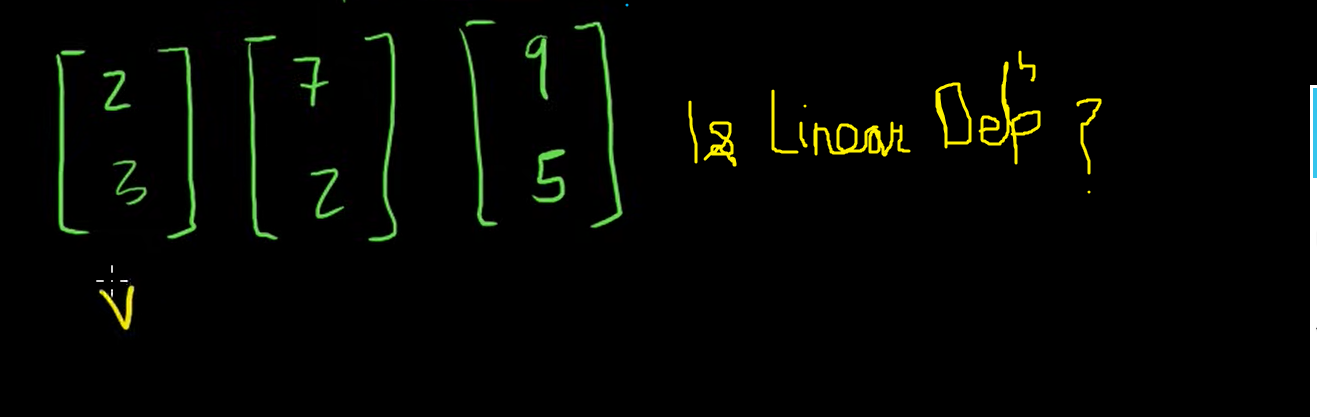 [2 3] [7 2] [9 5] Is Linear Dep ?
V